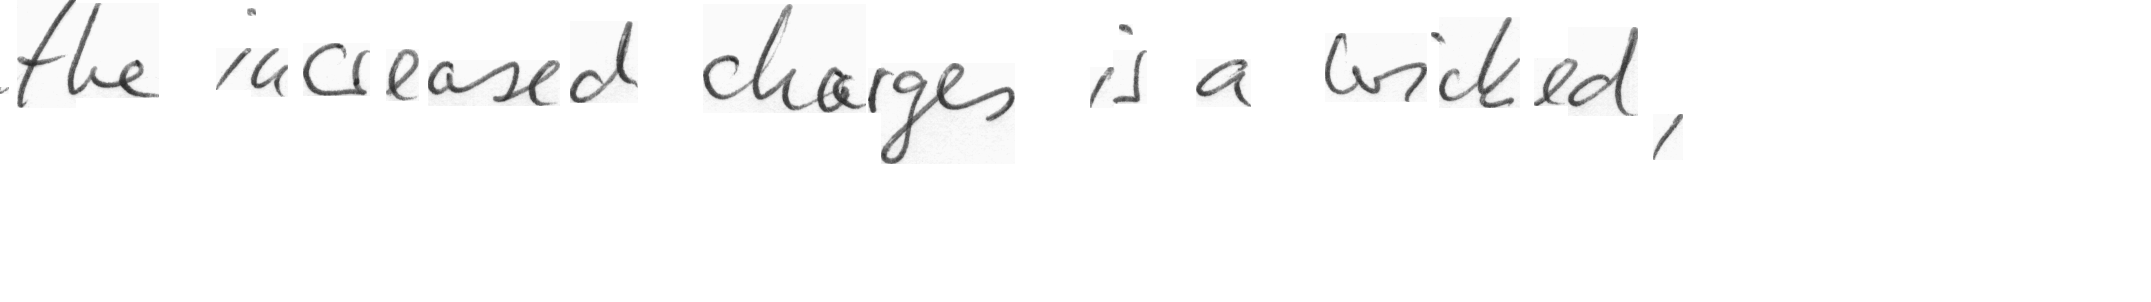 the increased charges is a wicked,